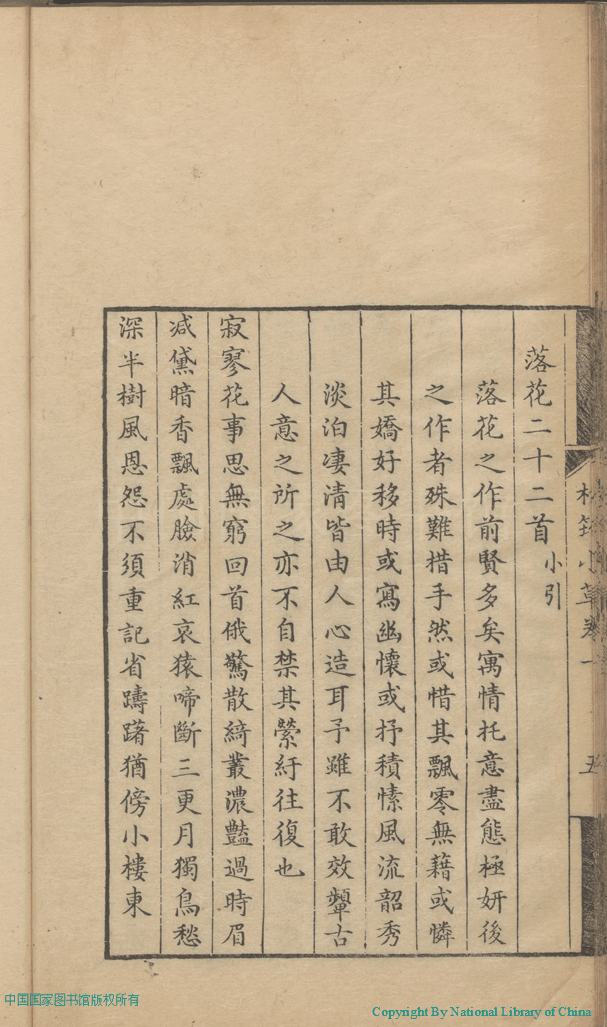 落花二十二首小引
落花之作前賢多矣寓情托意盡態極妍後
之作者殊難措手然或惜其飄零無藉或憐
其嬌好移時或寫幽懷或抒積愫風流韶秀
淡泊凄清皆由人心造耳予雖不敢效顰古
人意之所之亦不自禁其縈紆往復也
寂寥花事思無窮回首俄驚散綺叢濃豔過時眉
减黛暗香飄處臉消紅哀猿啼斷三更月獨鳥愁
深半樹風恩怨不須重記省躊躇猶傍小樓東
小草卷一
五
中国国家图书馆版权所有
Copyright By National Library of China